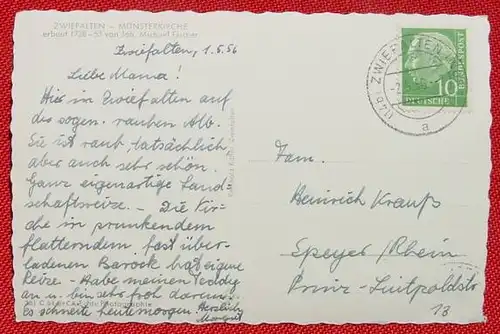 ZWIEFALTEN – MÜNSTERKIRCHE
erbaut 1738-53 von Joh. Michael Fischer
Zwiefalten, 1.5.56
Liebe Mama!
Hier in Zwiefalten auf
der sogen. rauhen Alb.
Sie ist rauh tatsächlich
aber auch sehr schön.
Ganz eigenartige Land
schaftsreize. – Die Kir-
che in prunkendem
flatterndem, fast über-
ladenen Barock hat eigene
Reize – Habe meinen Teddy
an u. bin sehr froh darum.
Es schneite heute morgen. Herzlichst
ZWIEFALTEN
a
10
DEUTSCHE
BUNDESPOST
Fam.
Heinrich Krauß
Speyer/Rhein
Prinz-Luitpoldstr
13